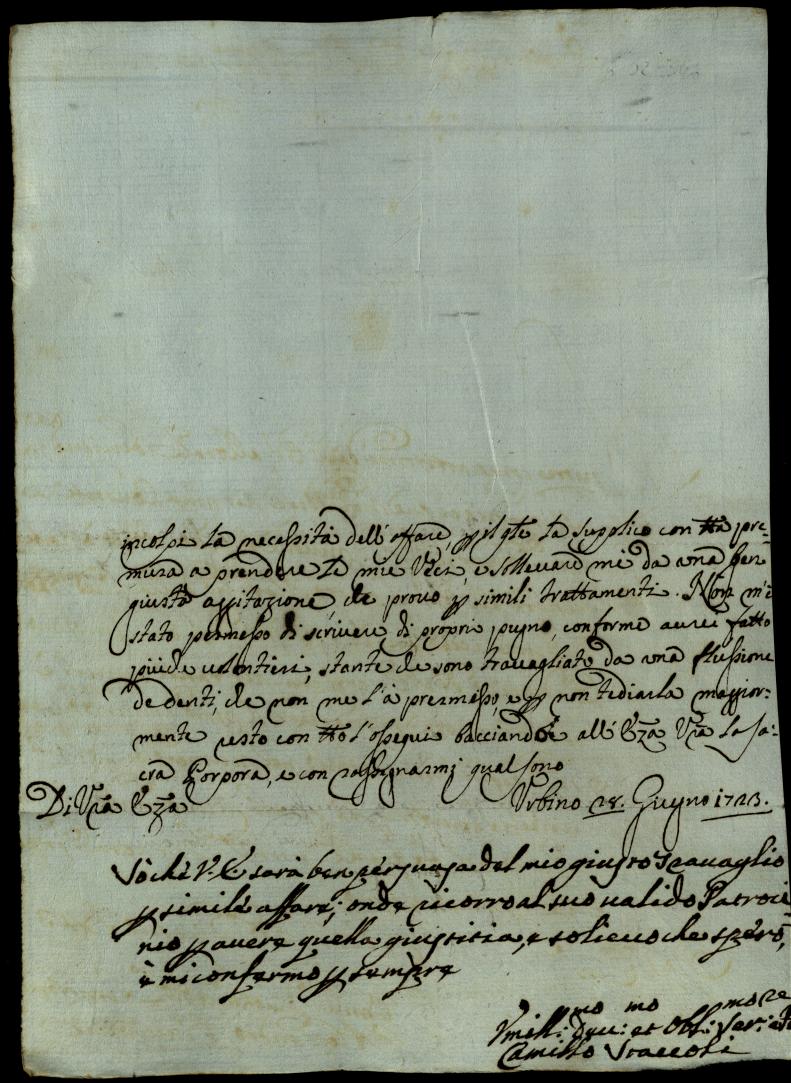 incolpi la necessità dell'affare, p il qle la supplico con tta pre=
mura a prendere le mie Veci, e sollevarmi da una ben
giusta agitazione, che provo p simili trattamenti. Non m'è
stato permesso di scrivere di proprio pugno, conforme avrei fatto
più che volontieri, stante che sono travagliato da una flussione
de denti, che non me l'à permesso, e p non tediarla maggior=
mente resto con tto l'ossequi bacciandole all'Eza Vra la Sa=
cra Porpora, e con rassegnarmi qual sono
Di Vra Eza
Urbino 28. Giugno 1723.
Sò che V. E. sarà ben persuasa del mio giusto travaglio
p simile affare; onde ricorro al suo valido Patroci
nio p avere quella giustitia, e solievo che spero,
e mi confermo p sempre
Umill:mo Dev:mo et Obb:mo Ser:re
Camillo Staccoli